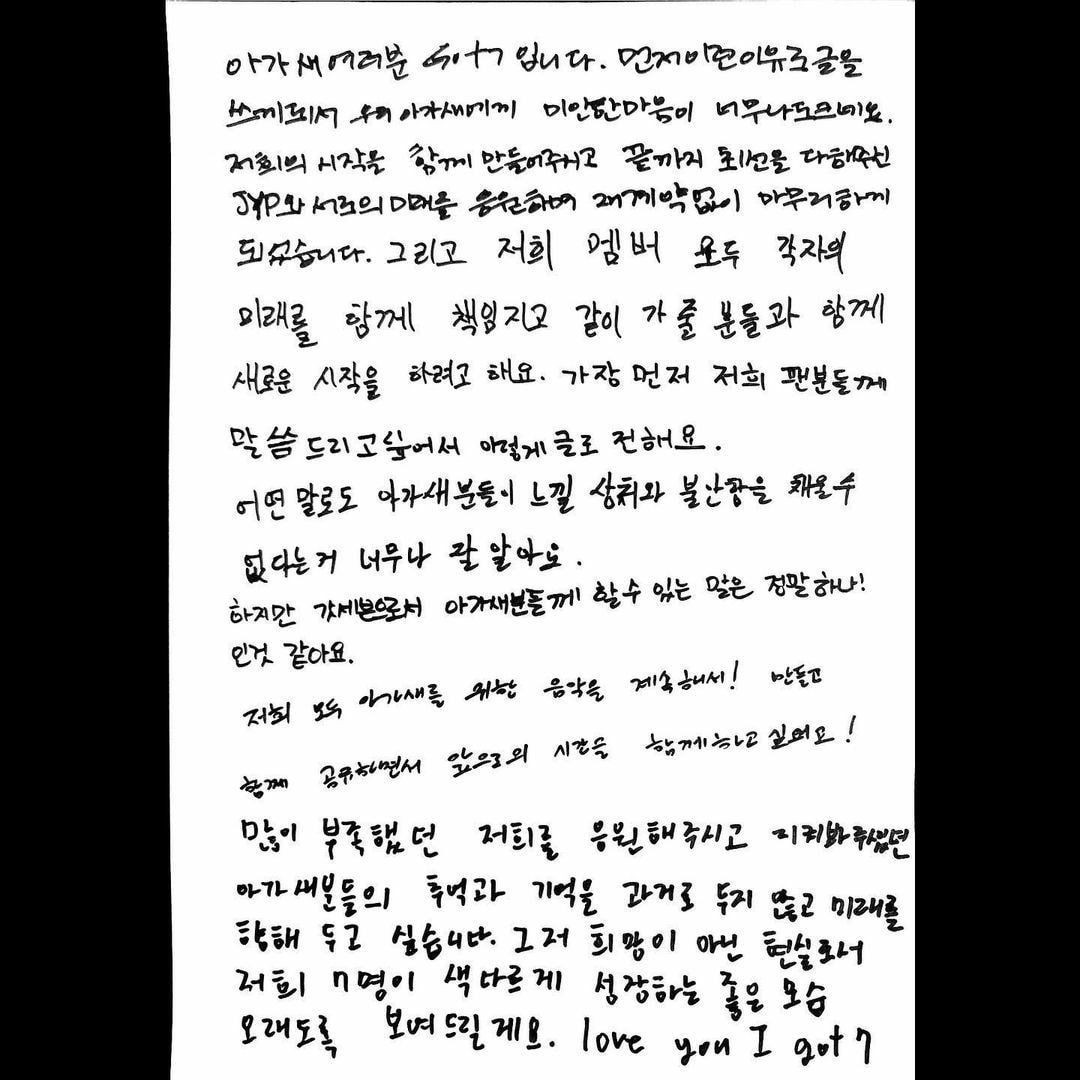 아가새여러분 Got7 입니다. 먼저이런이유로글을
쓰게되서 우리아가새에게 미안한마음이 너무나도크네요.
저희의 시작을 함께 만들어주시고 끝까지 최선을 다해주신
JYP와 서로의 미래를 응원하며 재계약없이 마무리하게
되었습니다. 그리고 저희 멤버 모두 각자의
미래를 함께 책임지고 같이 가 줄 분들과 함께
새로운 시작을 하려고 해요. 가장 먼저 저희 팬분들께
말씀 드리고싶어서 이렇게 글로 전해요.
어떤 말로도 아가새분들이 느낄 상처와 불안함을 채울수
없다는거 너무나 잘 알아요.
하지만 갓세븐으로서 아가새분들께 할수 있는 말은 정말하나!
인것 같아요.
저희 모두 아가새를 위한 음악을 계속해서! 만들고
함께 공유하면서 앞으로의 시간을 함께하고싶어요!
많이 부족했던 저희를 응원해주시고 지켜봐주셨던
아가새분들의 추억과 기억을 과거로 두지 않고 미래를
향해 두고 싶습니다. 그저 희망이 아닌 현실로서
저희 7명이 색다르게 성장하는 좋은 모습
오래도록 보여드릴게요. love you I got7